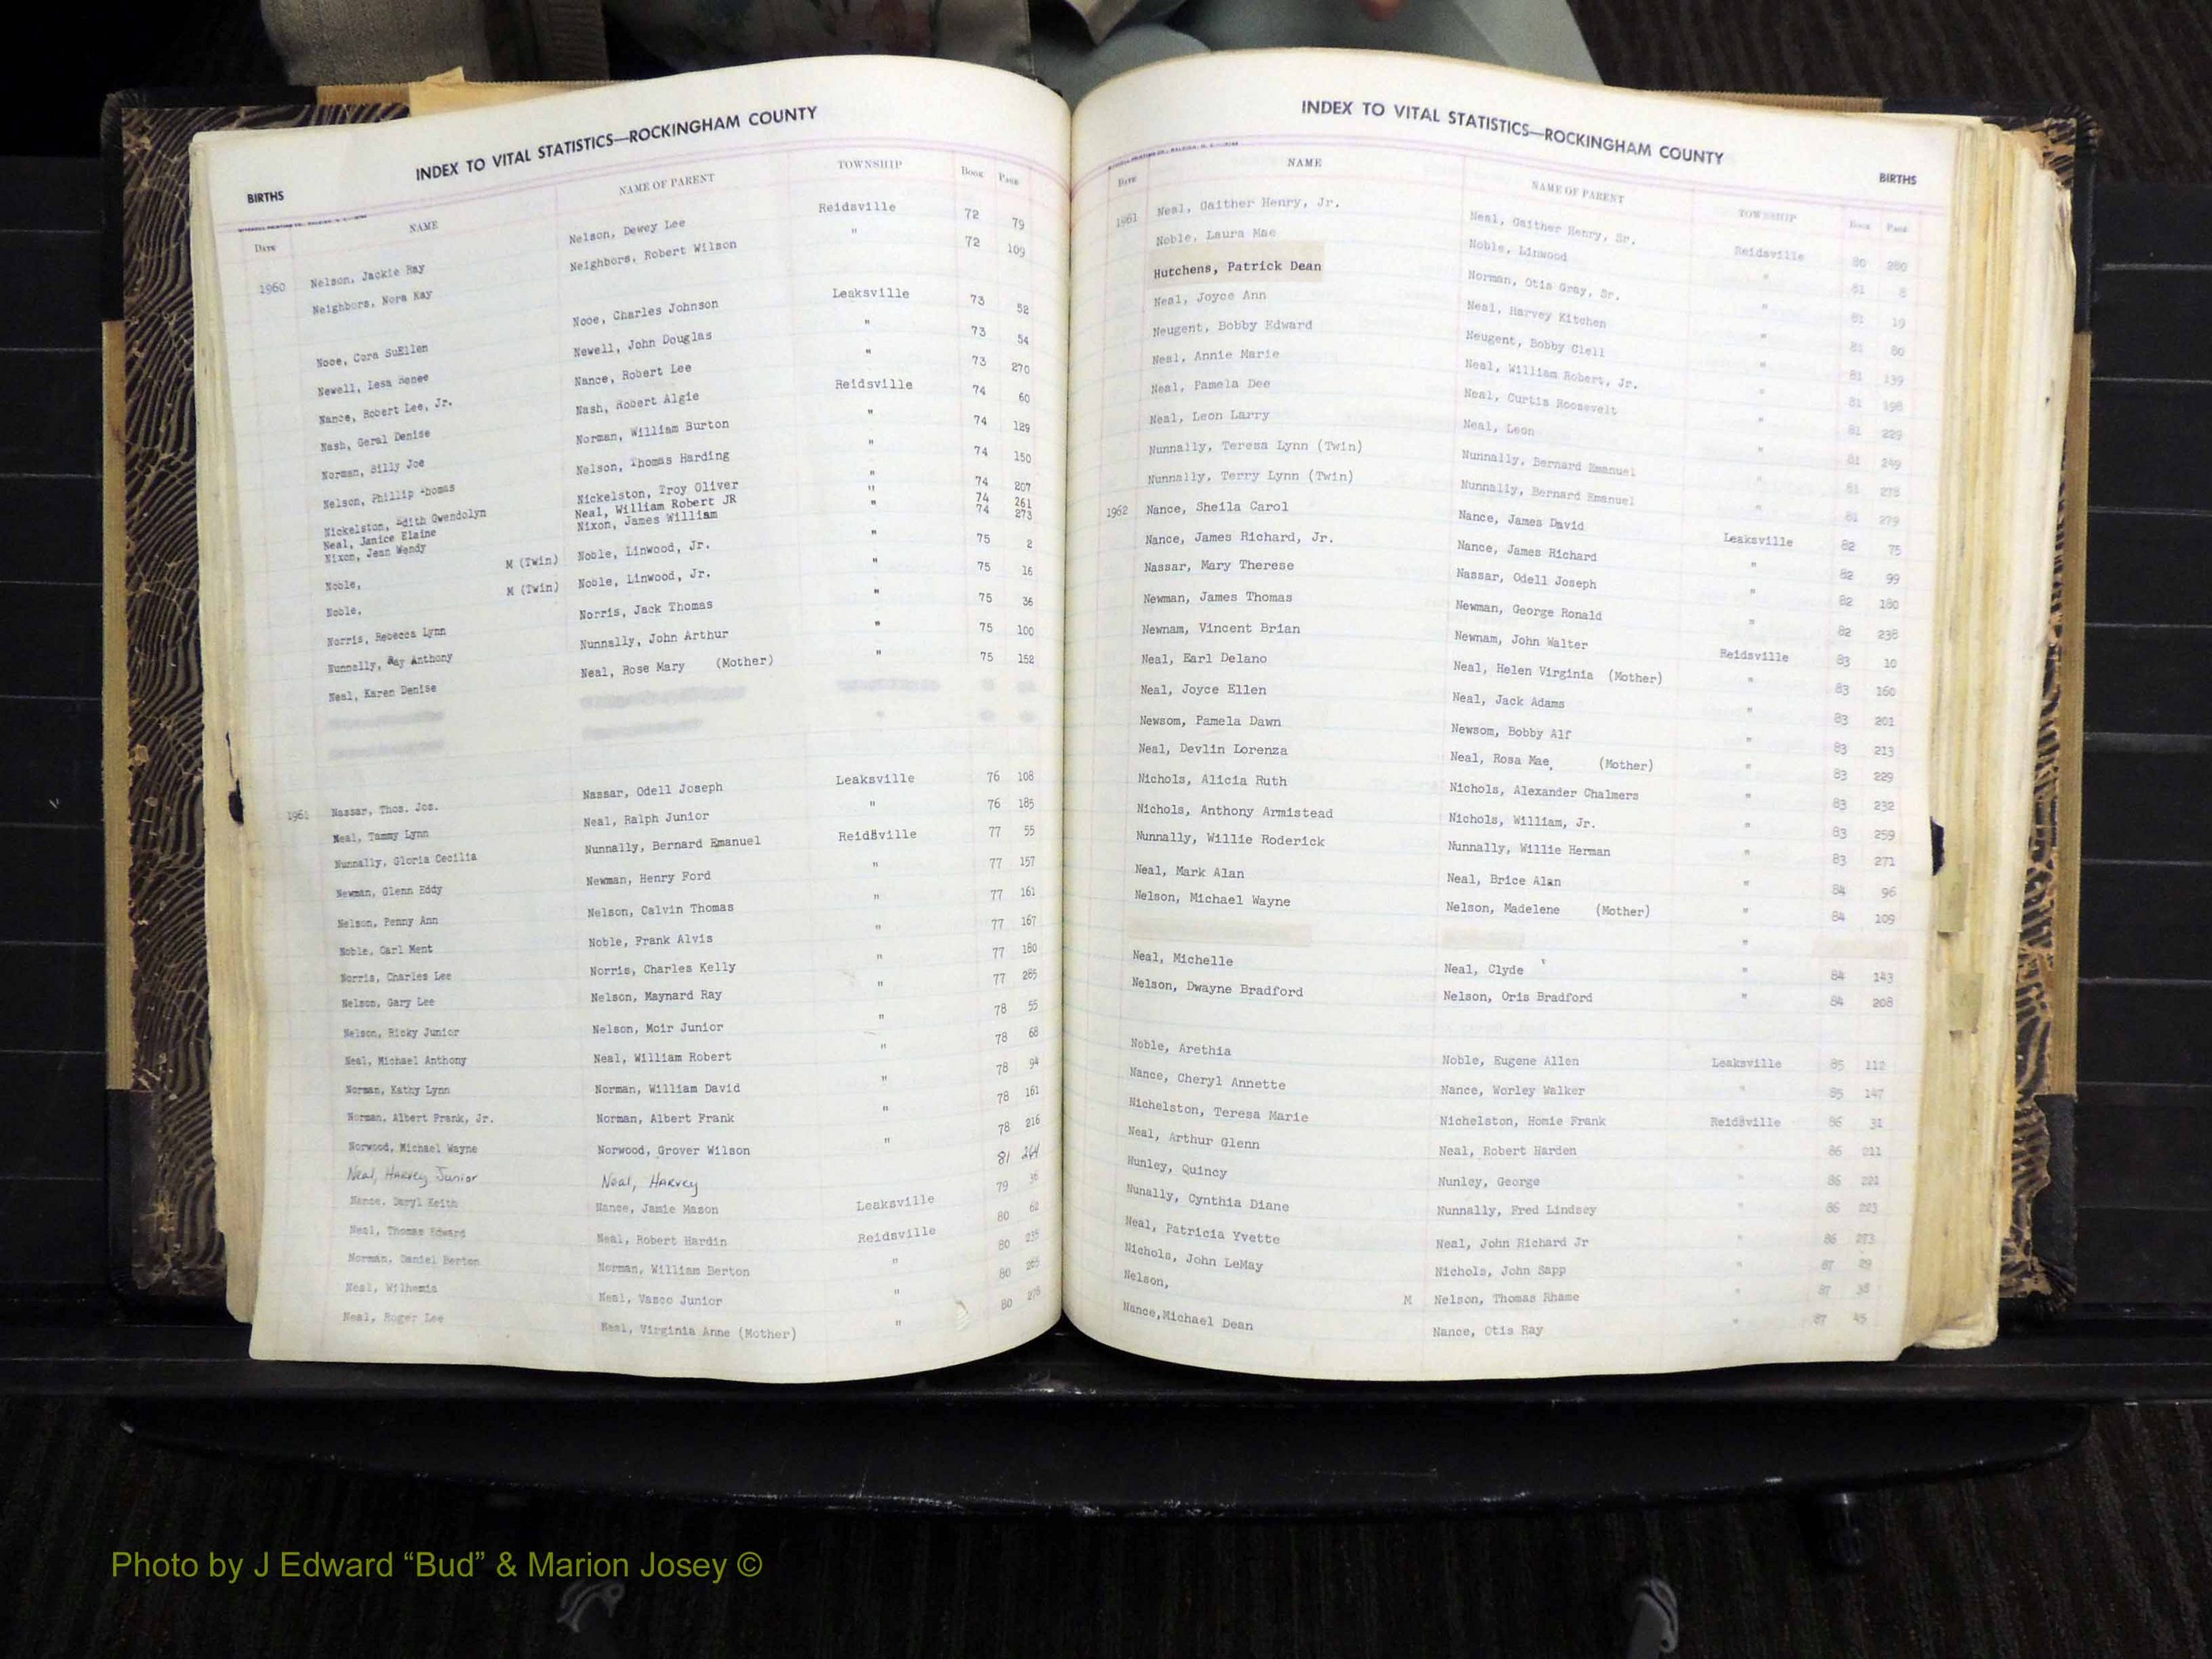 INDEX TO VITAL STATISTICS—ROCKINGHAM COUNTY
BIRTHS
DATE NAME NAME OF PARENT TOWNSHIP BOOK PAGE
1960 Nelson, Jackie Ray Nelson, Dewey Lee Reidsville 72 79
Neighbors, Nora Kay Neighbors, Robert Wilson " 72 109
Nooe, Cora SuEllen Nooe, Charles Johnson Leaksville 73 52
Newell, Lesa Renee Newell, John Douglas " 73 54
Nance, Robert Lee, Jr. Nance, Robert Lee " 73 270
Nash, Geral Denise Nash, Robert Algie Reidsville 74 60
Norman, Billy Joe Norman, William Burton " 74 129
Nelson, Phillip Thomas Nelson, Thomas Harding " 74 150
Nickelston, Edith Gwendolyn Nickelston, Troy Oliver " 74 207
Neal, Janice Elaine Neal, William Robert JR " 74 261
Nixon, Jean Wendy Nixon, James William " 74 273
Noble, M (Twin) Noble, Linwood, Jr. " 75 2
Noble, M (Twin) Noble, Linwood, Jr. " 75 16
Norris, Rebecca Lynn Norris, Jack Thomas " 75 36
Nunnally, Ray Anthony Nunnally, John Arthur " 75 100
Neal, Karen Denise Neal, Rose Mary (Mother) " 75 152
1961 Nassar, Thos. Jos. Nassar, Odell Joseph Leaksville 76 108
Neal, Tammy Lynn Neal, Ralph Junior " 76 185
Nunnally, Gloria Cecilia Nunnally, Bernard Emanuel Reidsville 77 55
Newman, Glenn Eddy Newman, Henry Ford " 77 157
Nelson, Penny Ann Nelson, Calvin Thomas " 77 161
Noble, Carl Ment Noble, Frank Alvis " 77 167
Norris, Charles Lee Norris, Charles Kelly " 77 180
Nelson, Gary Lee Nelson, Maynard Ray " 77 285
Nelson, Ricky Junior Nelson, Moir Junior " 78 55
Neal, Michael Anthony Neal, William Robert " 78 68
Norman, Kathy Lynn Norman, William David " 78 94
Norman, Albert Frank, Jr. Norman, Albert Frank " 78 161
Norwood, Michael Wayne Norwood, Grover Wilson " 78 216
Neal, Harvey Junior Neal, Harvey 81 264
Nance, Daryl Keith Nance, Jamie Mason Leaksville 79 36
Neal, Thomas Edward Neal, Robert Hardin Reidsville 80 62
Norman, Daniel Berton Norman, William Berton " 80 235
Neal, Wilhemia Neal, Vasco Junior " 80 265
Neal, Roger Lee Neal, Virginia Anne (Mother) " 80 276
INDEX TO VITAL STATISTICS—ROCKINGHAM COUNTY
BIRTHS
DATE NAME NAME OF PARENT TOWNSHIP BOOK PAGE
1961 Neal, Gaither Henry, Jr. Neal, Gaither Henry, Sr. Reidsville 80 280
Noble, Laura Mae Noble, Linwood " 81 8
Hutchens, Patrick Dean Norman, Otis Gray, Sr. " 81 19
Neal, Joyce Ann Neal, Harvey Kitchen " 81 80
Neugent, Bobby Edward Neugent, Bobby Clell " 81 139
Neal, Annie Marie Neal, William Robert, Jr. " 81 198
Neal, Pamela Dee Neal, Curtis Roosevelt " 81 229
Neal, Leon Larry Neal, Leon " 81 249
Nunnally, Teresa Lynn (Twin) Nunnally, Bernard Emanuel " 81 278
Nunnally, Terry Lynn (Twin) Nunnally, Bernard Emanuel " 81 279
1962 Nance, Sheila Carol Nance, James David Leaksville 82 75
Nance, James Richard, Jr. Nance, James Richard " 82 99
Nassar, Mary Therese Nassar, Odell Joseph " 82 180
Newman, James Thomas Newman, George Ronald " 82 238
Newnam, Vincent Brian Newnam, John Walter Reidsville 83 10
Neal, Earl Delano Neal, Helen Virginia (Mother) " 83 160
Neal, Joyce Ellen Neal, Jack Adams " 83 201
Newsom, Pamela Dawn Newsom, Bobby Alf " 83 213
Neal, Devlin Lorenza Neal, Rosa Mae, (Mother) " 83 229
Nichols, Alicia Ruth Nichols, Alexander Chalmers " 83 232
Nichols, Anthony Armistead Nichols, William, Jr. " 83 259
Nunnally, Willie Roderick Nunnally, Willie Herman " 83 271
Neal, Mark Alan Neal, Brice Alan " 84 96
Nelson, Michael Wayne Nelson, Madelene (Mother) " 84 109
"
Neal, Michelle Neal, Clyde " 84 143
Nelson, Dwayne Bradford Nelson, Oris Bradford " 84 208
Noble, Arethia Noble, Eugene Allen Leaksville 85 112
Nance, Cheryl Annette Nance, Worley Walker " 85 147
Nichelston, Teresa Marie Nichelston, Homie Frank Reidsville 86 31
Neal, Arthur Glenn Neal, Robert Harden " 86 211
Nunley, Quincy Nunley, George " 86 221
Nunally, Cynthia Diane Nunnally, Fred Lindsey " 86 223
Neal, Patricia Yvette Neal, John Richard Jr " 86 273
Nichols, John LeMay Nichols, John Sapp " 87 29
Nelson, M Nelson, Thomas Rhame " 87 38
Nance,Michael Dean Nance, Otis Ray " 87 45
Photo by J Edward “Bud” & Marion Josey ©